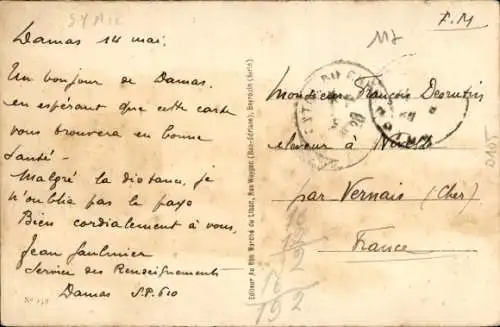 SYRIE
F.M
117
Damas 14 mai.
Un bonjour de Damas
en espérant que cette carte
vous trouvera en bonne
santé -
Malgré la distance, je
n'oublie pas le pays
Bien cordialement à vous,
Jean Gaulmier
Service des Renseignements
Damas S.P. 610
Editeur Au Bon Marché du Liban, Rue Weygand, (Bab-Edriss), Beyrouth (Syrie)
Monsieur François Desrutins
éleveur à
par Vernais (Cher)
France
16
192
2
16
192